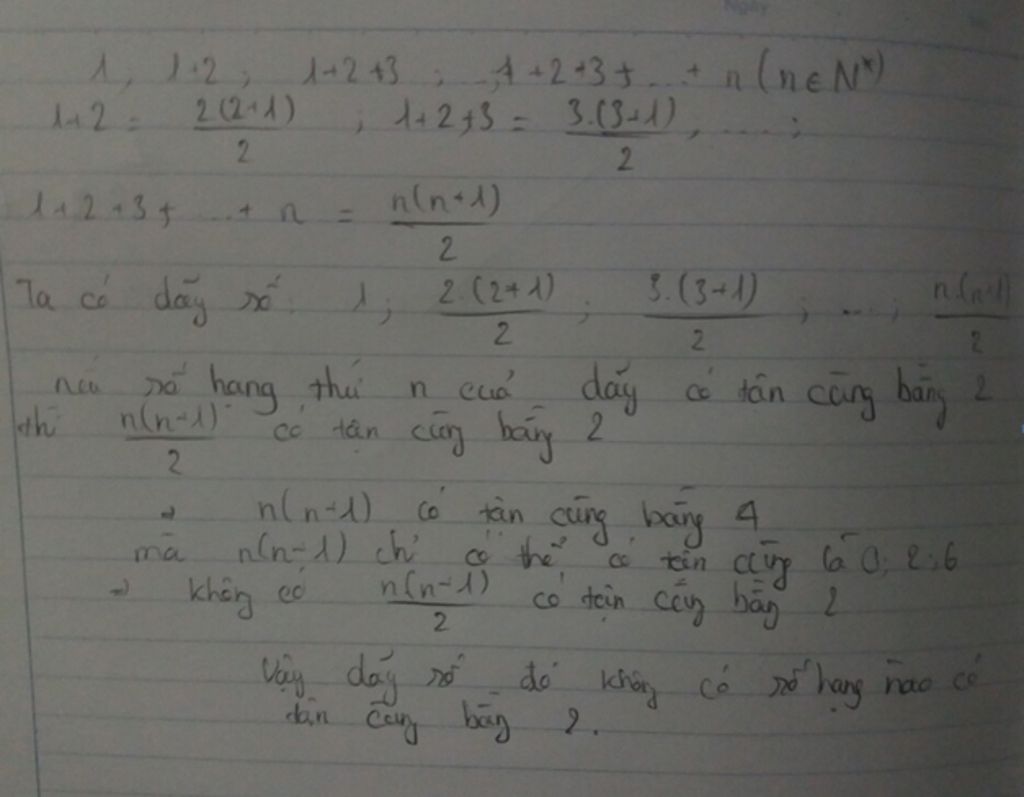 Ngày
1, 1+2; 1+2+3; ...; 1+2+3+...+ n (n ∈ N*)
1+2 = 2(2+1)/2 ; 1+2+3 = 3.(3+1)/2, ....;
1+2+3+ ...+ n = n(n+1)/2
Ta có dãy số 1; 2.(2+1)/2 ; 3.(3+1)/2 ; ...; n.(n+1)/2
nếu số hạng thứ n của dãy có tận cùng bằng 2
thì n(n+1)/2 có tận cùng bằng 2
→ n(n+1) có tận cùng bằng 4
mà n(n+1) chỉ có thể có tận cùng là 0; 2; 6
⇒ không có n(n+1)/2 có tận cùng bằng 2
Vậy dãy số đó không có số hạng nào có
tận cùng bằng 2.